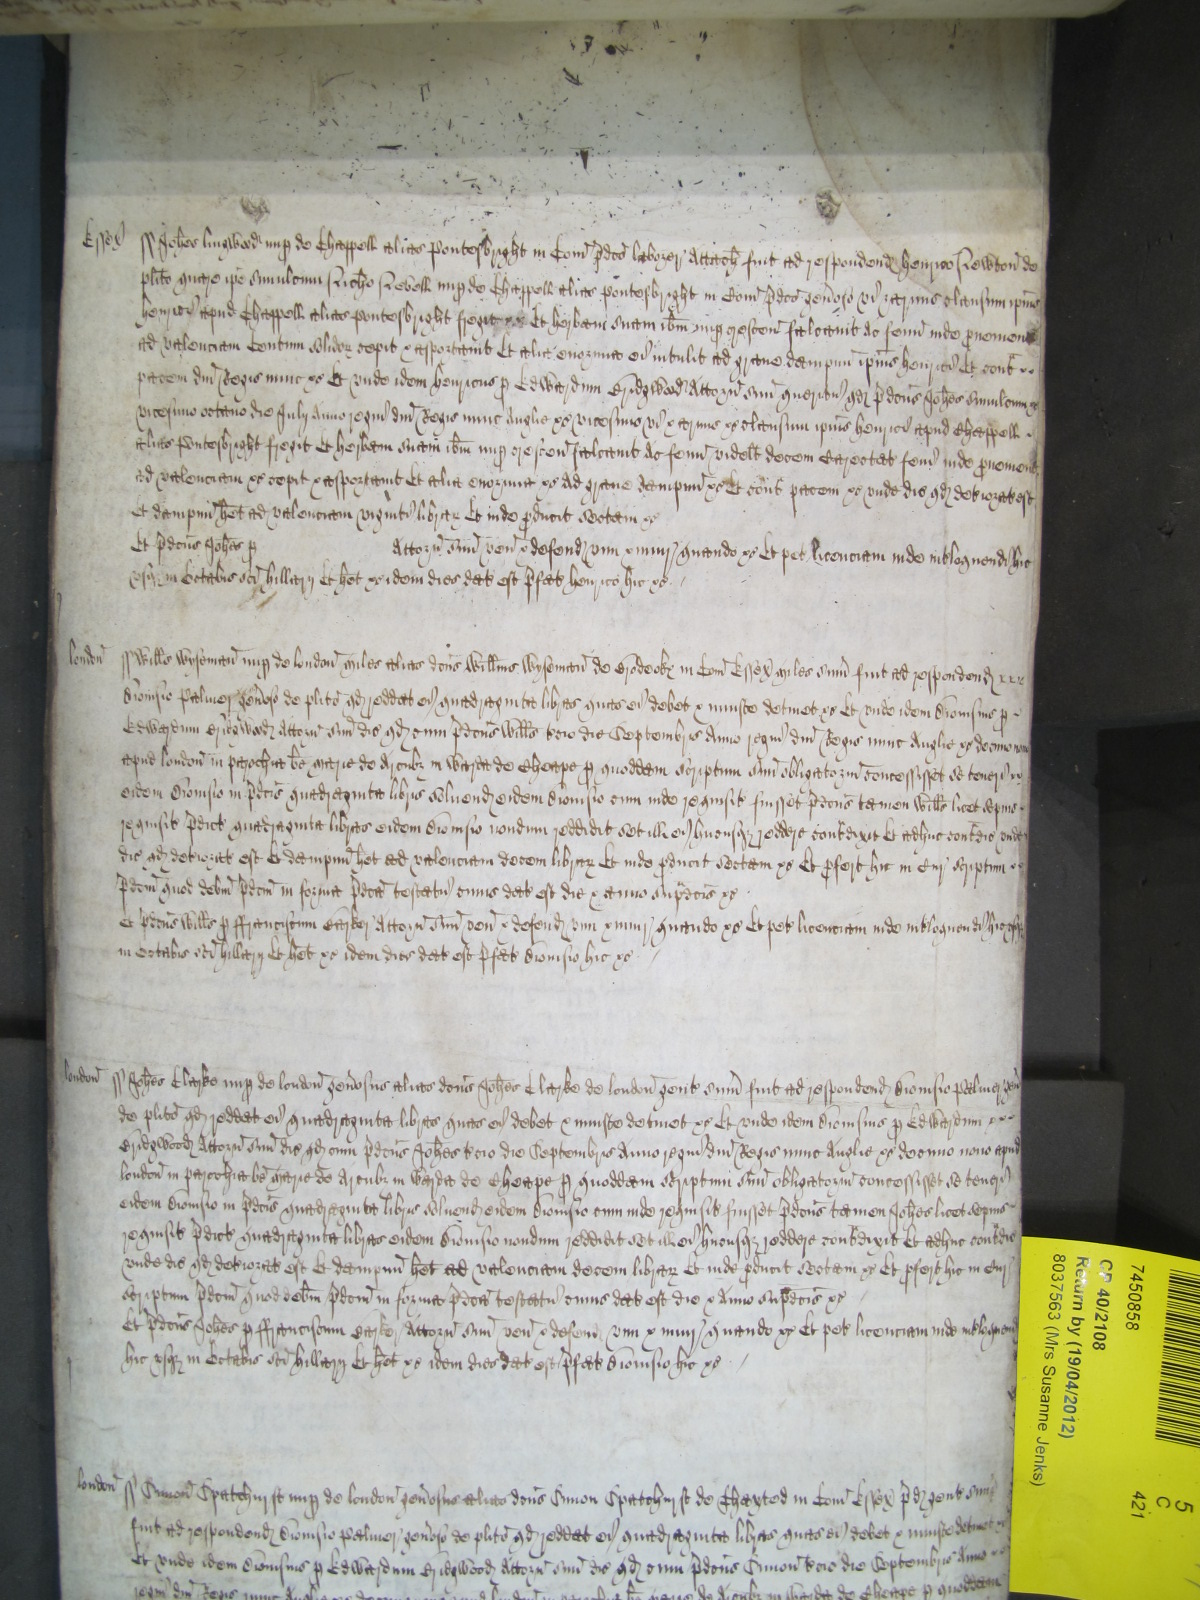 Essex ss Johes lingwood nup de Chappell alias Pontesbright in Com pdco laborer attach fuit ad respondend henrico Newton de
plito quare ipe simulcum Richo Nevell nup de Chappell alias Pontesbright in Com pdco genoso vi & armis clausum ipius
henrici apud Chappell alias Pontesbright fregit &c Et herbam suam ibm nup crescen falcavit ac fenu inde provenien
ad valenciam Centum solidor cepit & asportavit Et alia enormia ei intulit ad grave dampnu ipius henrici Et cont
pacem dni Regis nunc &c Et unde idem henricus p Edwardum Bridgwood Attorn suu querit qd pdcus Johes simulcum &c
vicesimo octavo die July Anno regni dni Regis nunc Anglie &c vicesimo vi & armis &c clausum ipius henrici apud Chappell
alias Pontesbright fregit Et herbam suam ibm nup crescen falcavit ac fenu videlt decem Carectat feni inde provenien
ad valenciam &c cepit & asportavit Et alia enormia &c Ad grave dampnu &c Et cont pacem &c unde dic qd deteriorat est
Et dampnu het ad valenciam viginti librar Et inde producit sectam &c
Et pdcus Johes p Attorn suu ven & defend vim & iniur quando &c Et pet licenciam inde interloquendi hic
usq in Octabis sci hillarij Et het &c idem dies dat est pfat henrico hic &c
london ss Willms Wyseman nup de london miles alias dcus Willms Wyseman de in Com Essex miles sum fuit ad respondend
Dionisio Palmer genoso de plito qd reddat ei quadraginta libras quas ei debet & iniuste detinet &c Et unde idem Dionisius p
Edwardum Bridgwood Attorn suu dic qd cum pdcus Willms tcio die Septembris Anno regni dni Regis nunc Anglie &c decimo nono
apud london in parochia be Marie de Arcubz in Warda de Cheape p quoddam scriptum suu obligatoriu concessisset se teneri
eidem Dionisio in pdcis quadraginta libris solvend eidem Dionisio cum inde requisit fuisset pdcus tamen Willms licet sepius
requisit pdict quadraginta libras eidem Dionisio nondum reddidit set ill ei hucusq reddere contdixit Et adhuc contdic unde
dic qd deteriorat est Et dampnu het ad valenciam decem librar Et inde producit sectam &c Et profert hic in Cur scriptum
pdcm quod debm pdcm in forma pdca testatur cuius dat est die & anno supdcis &c
Et pdcus Willms p ffranciscum Attorn suu ven & defend vim & iniur quando &c Et pet licenciam inde interloquendi hic usq
in Octabis sci hillarij Et het &c idem dies dat est pfat Dionisio hic &c
london ss Johes Clarke nup de london genosus alias dcus Johes Clarke de london gent sum fuit ad respondend Dionisio Palmer gen
de plito qd reddat ei quadraginta libras quas ei debet & iniuste detinet &c Et unde idem Dionisius p Edwardum
Bridgwood Attorn suu dic qd cum pdcus Johes tcio die Septembris Anno regni dni Regis nunc Anglie &c decimo nono apud
london in parochia be Marie de Arcubz in Warda de Cheape p quoddam scriptum suu obligatoriu concessisset se teneri
eidem Dionisio in pdcis quadraginta libris solvend eidem Dionisio cum inde requisit fuisset pdcus tamen Johes licet sepius
requisit pdict quadraginta libras eidem Dionisio nondum reddidit set ill ei hucusq reddere contdixit Et adhuc contdic
unde dic qd deteriorat est Et dampnu het ad valenciam decem librar Et inde producit sectam &c Et profert hic in Cur
scriptum pdcm quod debm pdcm in forma pdca testatur cuius dat est die & Anno supdcis &c
Et pdcus Johes p ffranciscum Attorn suu ven & defend vim & iniur quando &c Et pet licenciam inde interloquend
hic usq in Octabis sci hillarij Et het &c idem dies dat est pfat Dionisio hic &c
london ss Simon nup de london genosus alias dcus Simon de Thaxted in Com Essex gent sum
fuit ad respondend Dionisio Palmer genoso de plito qd reddat ei quadraginta libras quas ei debet & iniuste detinet
Et unde idem Dionisius p Edwardum Bridgwood Attorn suu dic qd cum pdcus Simon tcio die Septembris Anno
regni dni Regis nunc Anglie &c decimo nono apud london in parochia be Marie de Arcubz in Warda de Cheape p quoddam
7450858
CP 40/2108
Return by (19/04/2012)
8037563 (Mrs Susanne Jenks)
5
C
421